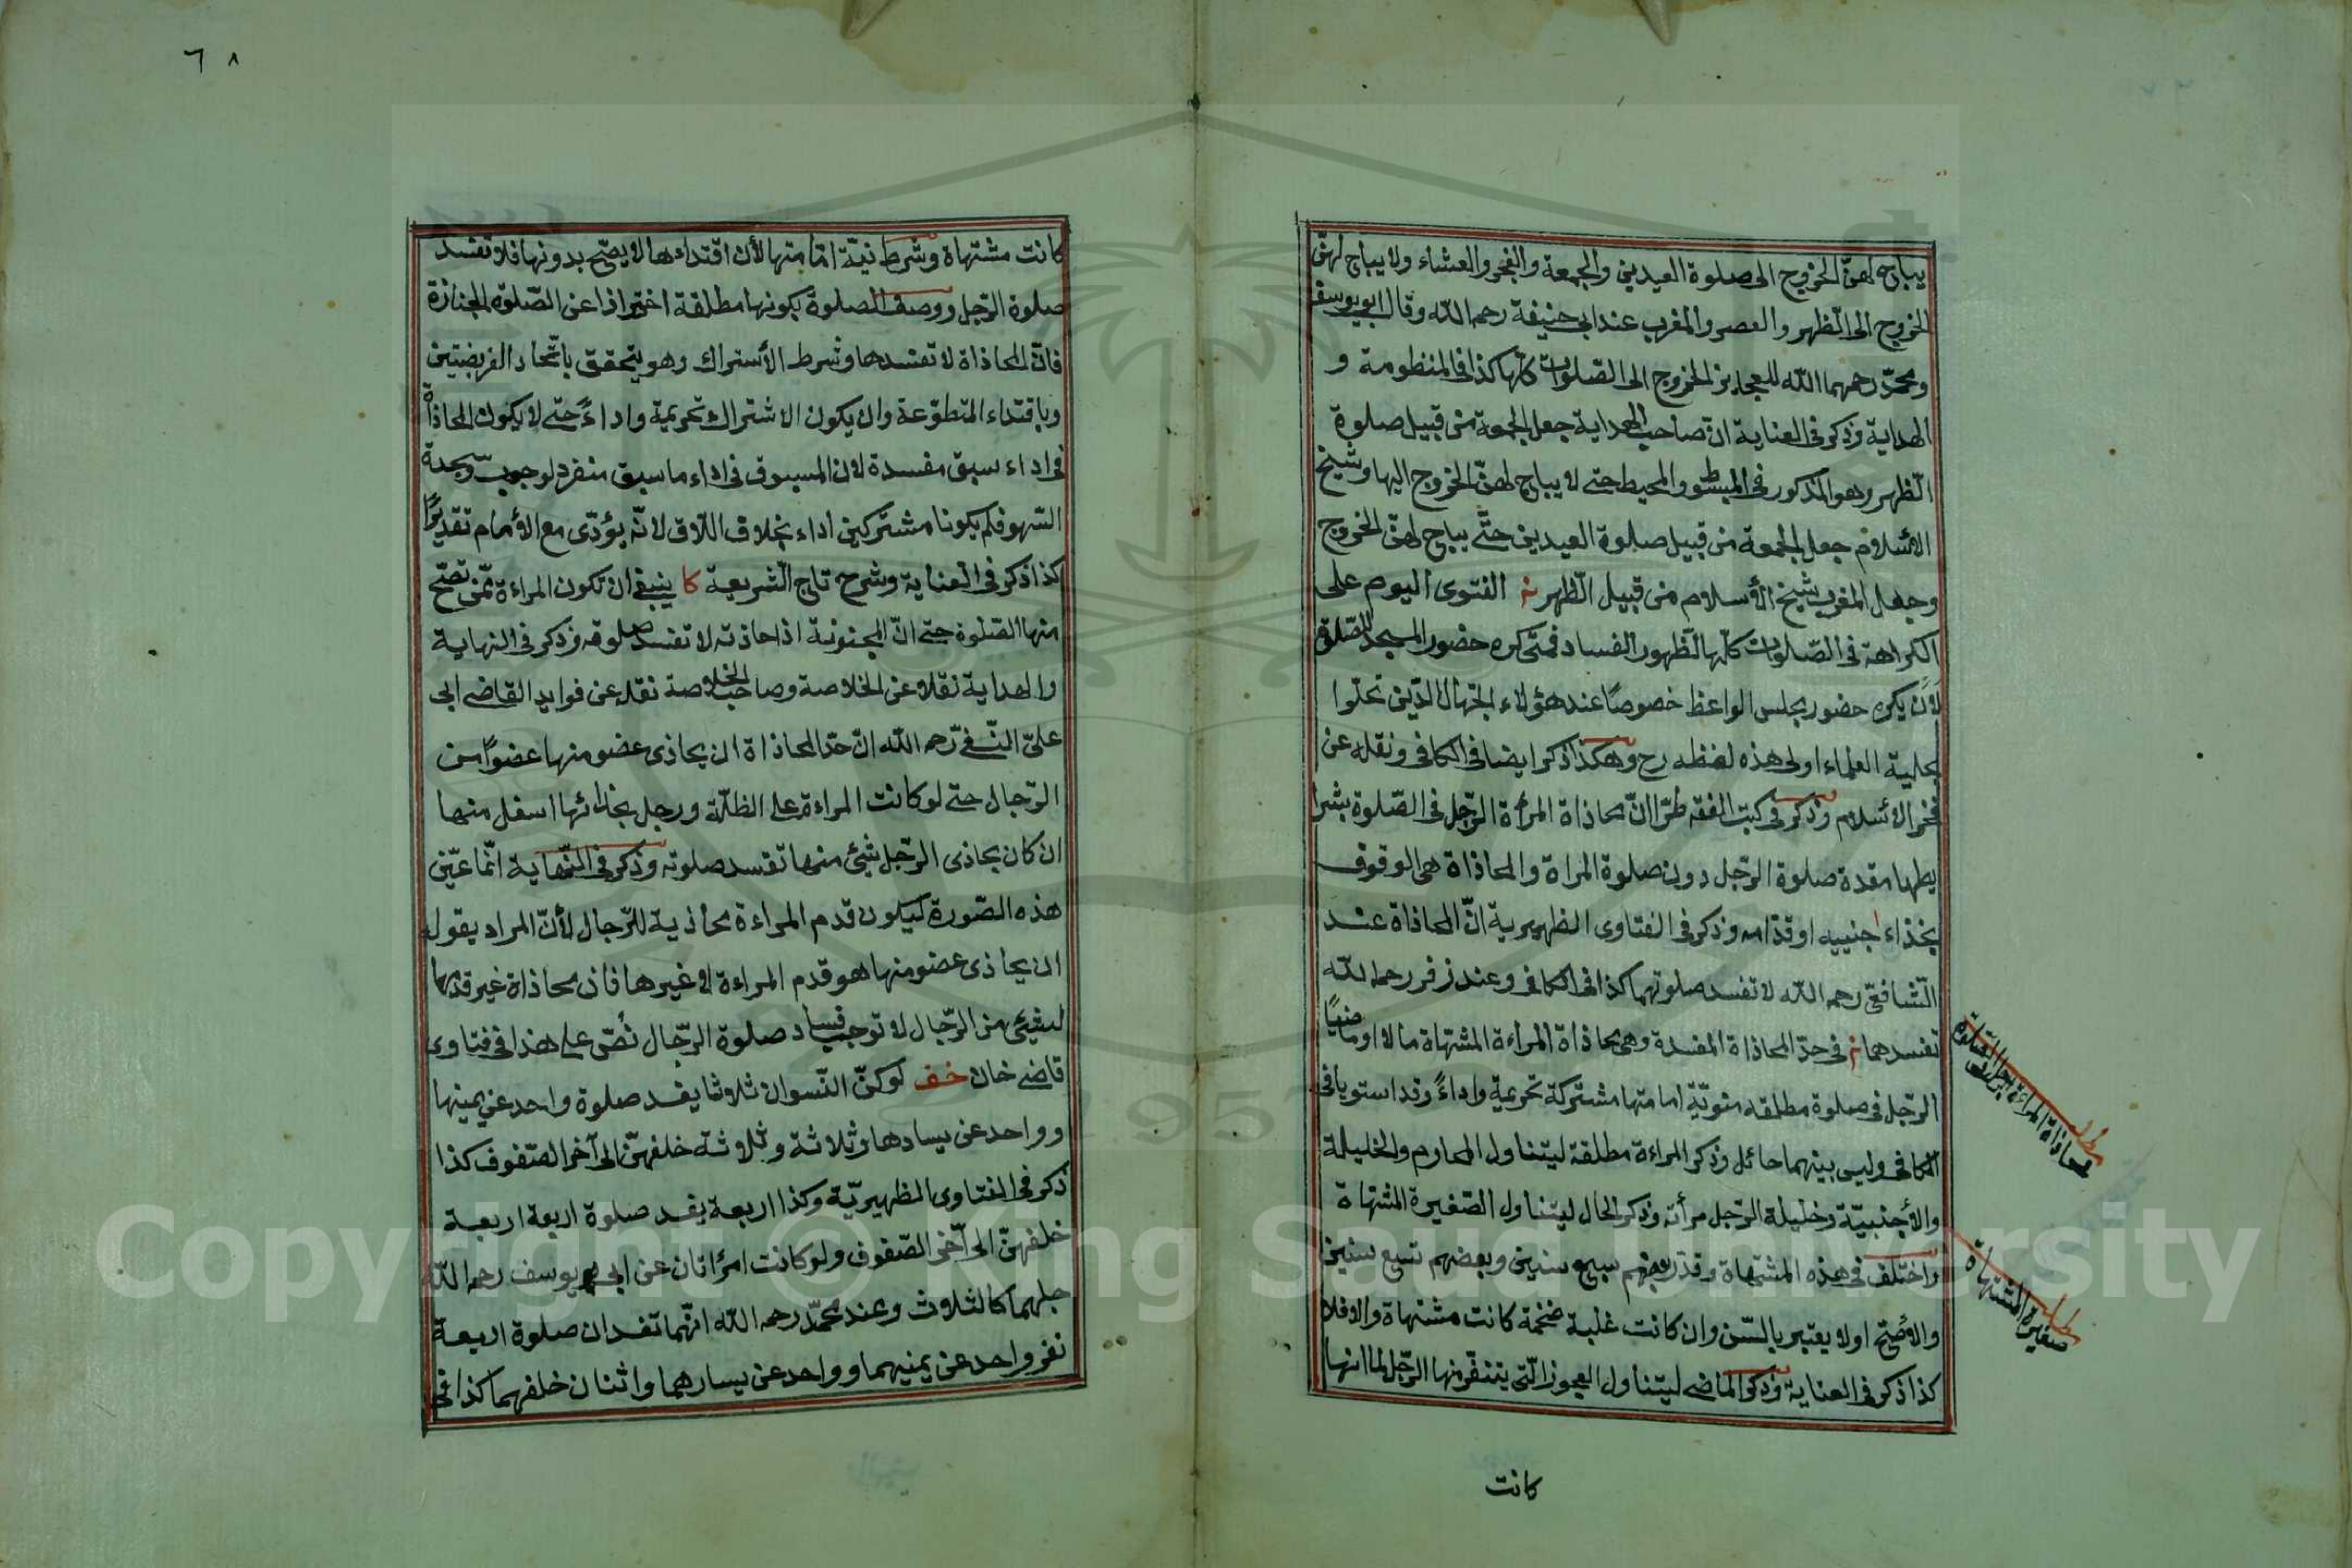 يباح لهنّ الخروج الى صلوة العيدين والجمعة والفجر والعشاء ولا يباح لهنّ
الخروج الى الظهر والعصر والمغرب عند ابى حنيفة رحمه الله وقال ابو يوسف
ومحمّد رحمهما الله للعجايز الخروج الى الصّلوات كلّها كذا فى المنظومة و
الهداية وذكر فى العناية انّ صاحب الهداية جعل الجمعة من قبيل صلوة
الظهر وهو المذكور فى المبسوط والمحيط حتى لا يباح لهنّ الخروج اليها وشيخ
الأسلام جعل الجمعة من قبيل صلوة العيدين حتّى يباح لهنّ الخروج
وجعل المغرب شيخ الأسلام من قبيل الظهر الفتوى اليوم على
الكراهة فى الصّلوات كلّها لظهور الفساد فمتى كره حضور المسجد للصّلوة
لأن يكره حضور مجلس الواعظ خصوصًا عند هؤلاء الجهال الذين تحلّوا
بحلية العلماء اولى هذه لفظه رح وهكذا ذكر ايضا فى الكافى ونقله عن
فخر الأسلام وذكر فى كتب الفقه طرّا انّ محاذاة المرأة الرّجل فى الصّلوة بشرا
يطها مفسدة صلوة الرّجل دون صلوة المراة والمحاذاة هى الوقوف
بحذاء جنبيه او قدّامه وذكر فى الفتاوى الظهيرية انّ المحاذاة عند
الشّافعى رحمه الله لا تفسد صلوتهما كذا فى الكافى وعند زفر رحمه الله
تفسدهما فى حدّ المحاذاة المفسدة وهى محاذاة المراءة المشتهاة حالا او ماضيًا
الرّجل فى صلوة مطلقه منويّة امامتها مشتركة تحريمية واداءً وقد استويا فى
المكان وليس بينهما حائل وذكر المراءة مطلقة ليتناول المحارم والحليلة
والأجنبيّة وحليلة الرّجل مرأته وذكر الحال ليتناول الصّغيرة المشتهاة
واختلف فى هذه المشتهاة وقدّر بعضهم سبع سنين وبعضهم تسع سنين
والأصّح اولا يعتبر بالسّن وان كانت غلبة ضخمة كانت مشتهاة والا فلا
كذا ذكر فى العناية وذكر الماضى ليتناول العجوز الّتى يتنفّر منها الرّجل لما انها
مطلب
محاذاة المراءة
مطلب
صغيرة المشتهاة
كانت
٦٨
كانت مشتهاة وشرط نيّة امامتها لأن اقتداءها لا يصّح بدونها فلا تفسد
صلوة الرّجل ووصف الصلوة بكونها مطلقة احترازا عن الصّلوة الجنازة
فانّ المحاذاة لا تفسدها وشرط الأشتراك وهو يتحقق باتّحاد الفريضتين
وباقتداء المتطوّعة وان يكون الاشتراك تحريمية واداءً حتى لا يكون المحاذاة
فى اداء سبق مفسدة لان المسبوق فى اداء ما سبق منفرد لوجوب سجدة
السّهو فلم يكونا مشتركين اداء بخلاف اللّاحق لانّه يؤدّى مع الأمام تقديرًا
كذا ذكر فى العناية وشرح تاج الشّريعة كا ينبغى ان تكون المراءة ممّن تصّح
منها الصّلوة حتى انّ المجنونة اذا حاذته لا تفسد صلوته وذكر فى النهاية
والهداية نقلا عن الخلاصة وصاحب الخلاصة نقله عن فوايد القاضى ابى
علىّ النّسفى رّحمه الله انّ حدّ المحاذاة ان يحاذى عضو منها عضوًا من
الرّجال حتى لو كانت المراءة على الظلّة ورجل بحذائها اسفل منها
ان كان يحاذى الرّجل شئ منها تفسد صلوته وذكر فى النّهاية انّما عيّن
هذه الصّورة ليكون قدم المراءة محاذية للرّجال لأنّ المراد بقوله
ان يحاذى عضو منها هو قدم المراءة لا غيرها فان محاذاة غير قدمها
لشئ من الرّجال لا توجب فساد صلوة الرّجال نُصّ على هذا فى فتاوى
قاضى خان خف لو كنّ النّسوان ثلاوثا يفسد صلوة واحد عن يمينها
وواحد عن يسارها وثلاثة وثلاوثة خلفهنّ الى آخر الصّفوف كذا
ذكر فى الفتاوى الظهيريّة وكذا اربعة يفسد صلوة اربعة اربعة
خلفهنّ الى آخر الصّفوف ولو كانت امرأتان عن ابى يوسف رحمه الله
جعلهما كالثلاوث وعند محمّد رحمه الله انّهما تفسدان صلوة اربعة
نفر واحد عن يمنيهما وواحد عن يسارهما واثنان خلفهما كذا فى
Copyright © King Saud University